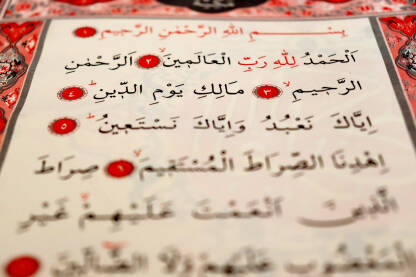 بِسْمِ اللهِ الرَّحْمٰنِ الرَّحِيمِ ١
اَلْحَمْدُ لِلّٰهِ رَبِّ الْعَالَمِينَۙ ٢ اَلرَّحْمٰنِ
الرَّحِيمِۙ ٣ مَالِكِ يَوْمِ الدِّينِۜ ٤
اِيَّاكَ نَعْبُدُ وَاِيَّاكَ نَسْتَعِينُۜ ٥
اِهْدِنَا الصِّرَاطَ الْمُسْتَقِيمَۙ ٦ صِرَاطَ
الَّذِينَ اَنْعَمْتَ عَلَيْهِمْۙ غَيْرِ
الْمَغْضُوبِ عَلَيْهِمْ وَلَا الضَّٓالِّينَ